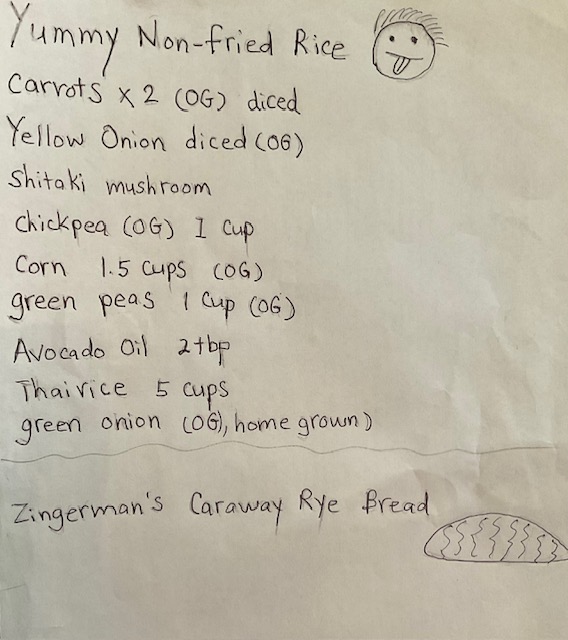 Yummy Non-fried Rice
Carrots x 2 (OG) diced
Yellow Onion diced (OG)
Shitaki mushroom
Chickpea (OG) 1 Cup
Corn 1.5 cups (OG)
green peas 1 Cup (OG)
Avocado Oil 2tbp
Thai rice 5 cups
green onion (OG), home grown)
Zingerman's Caraway Rye Bread